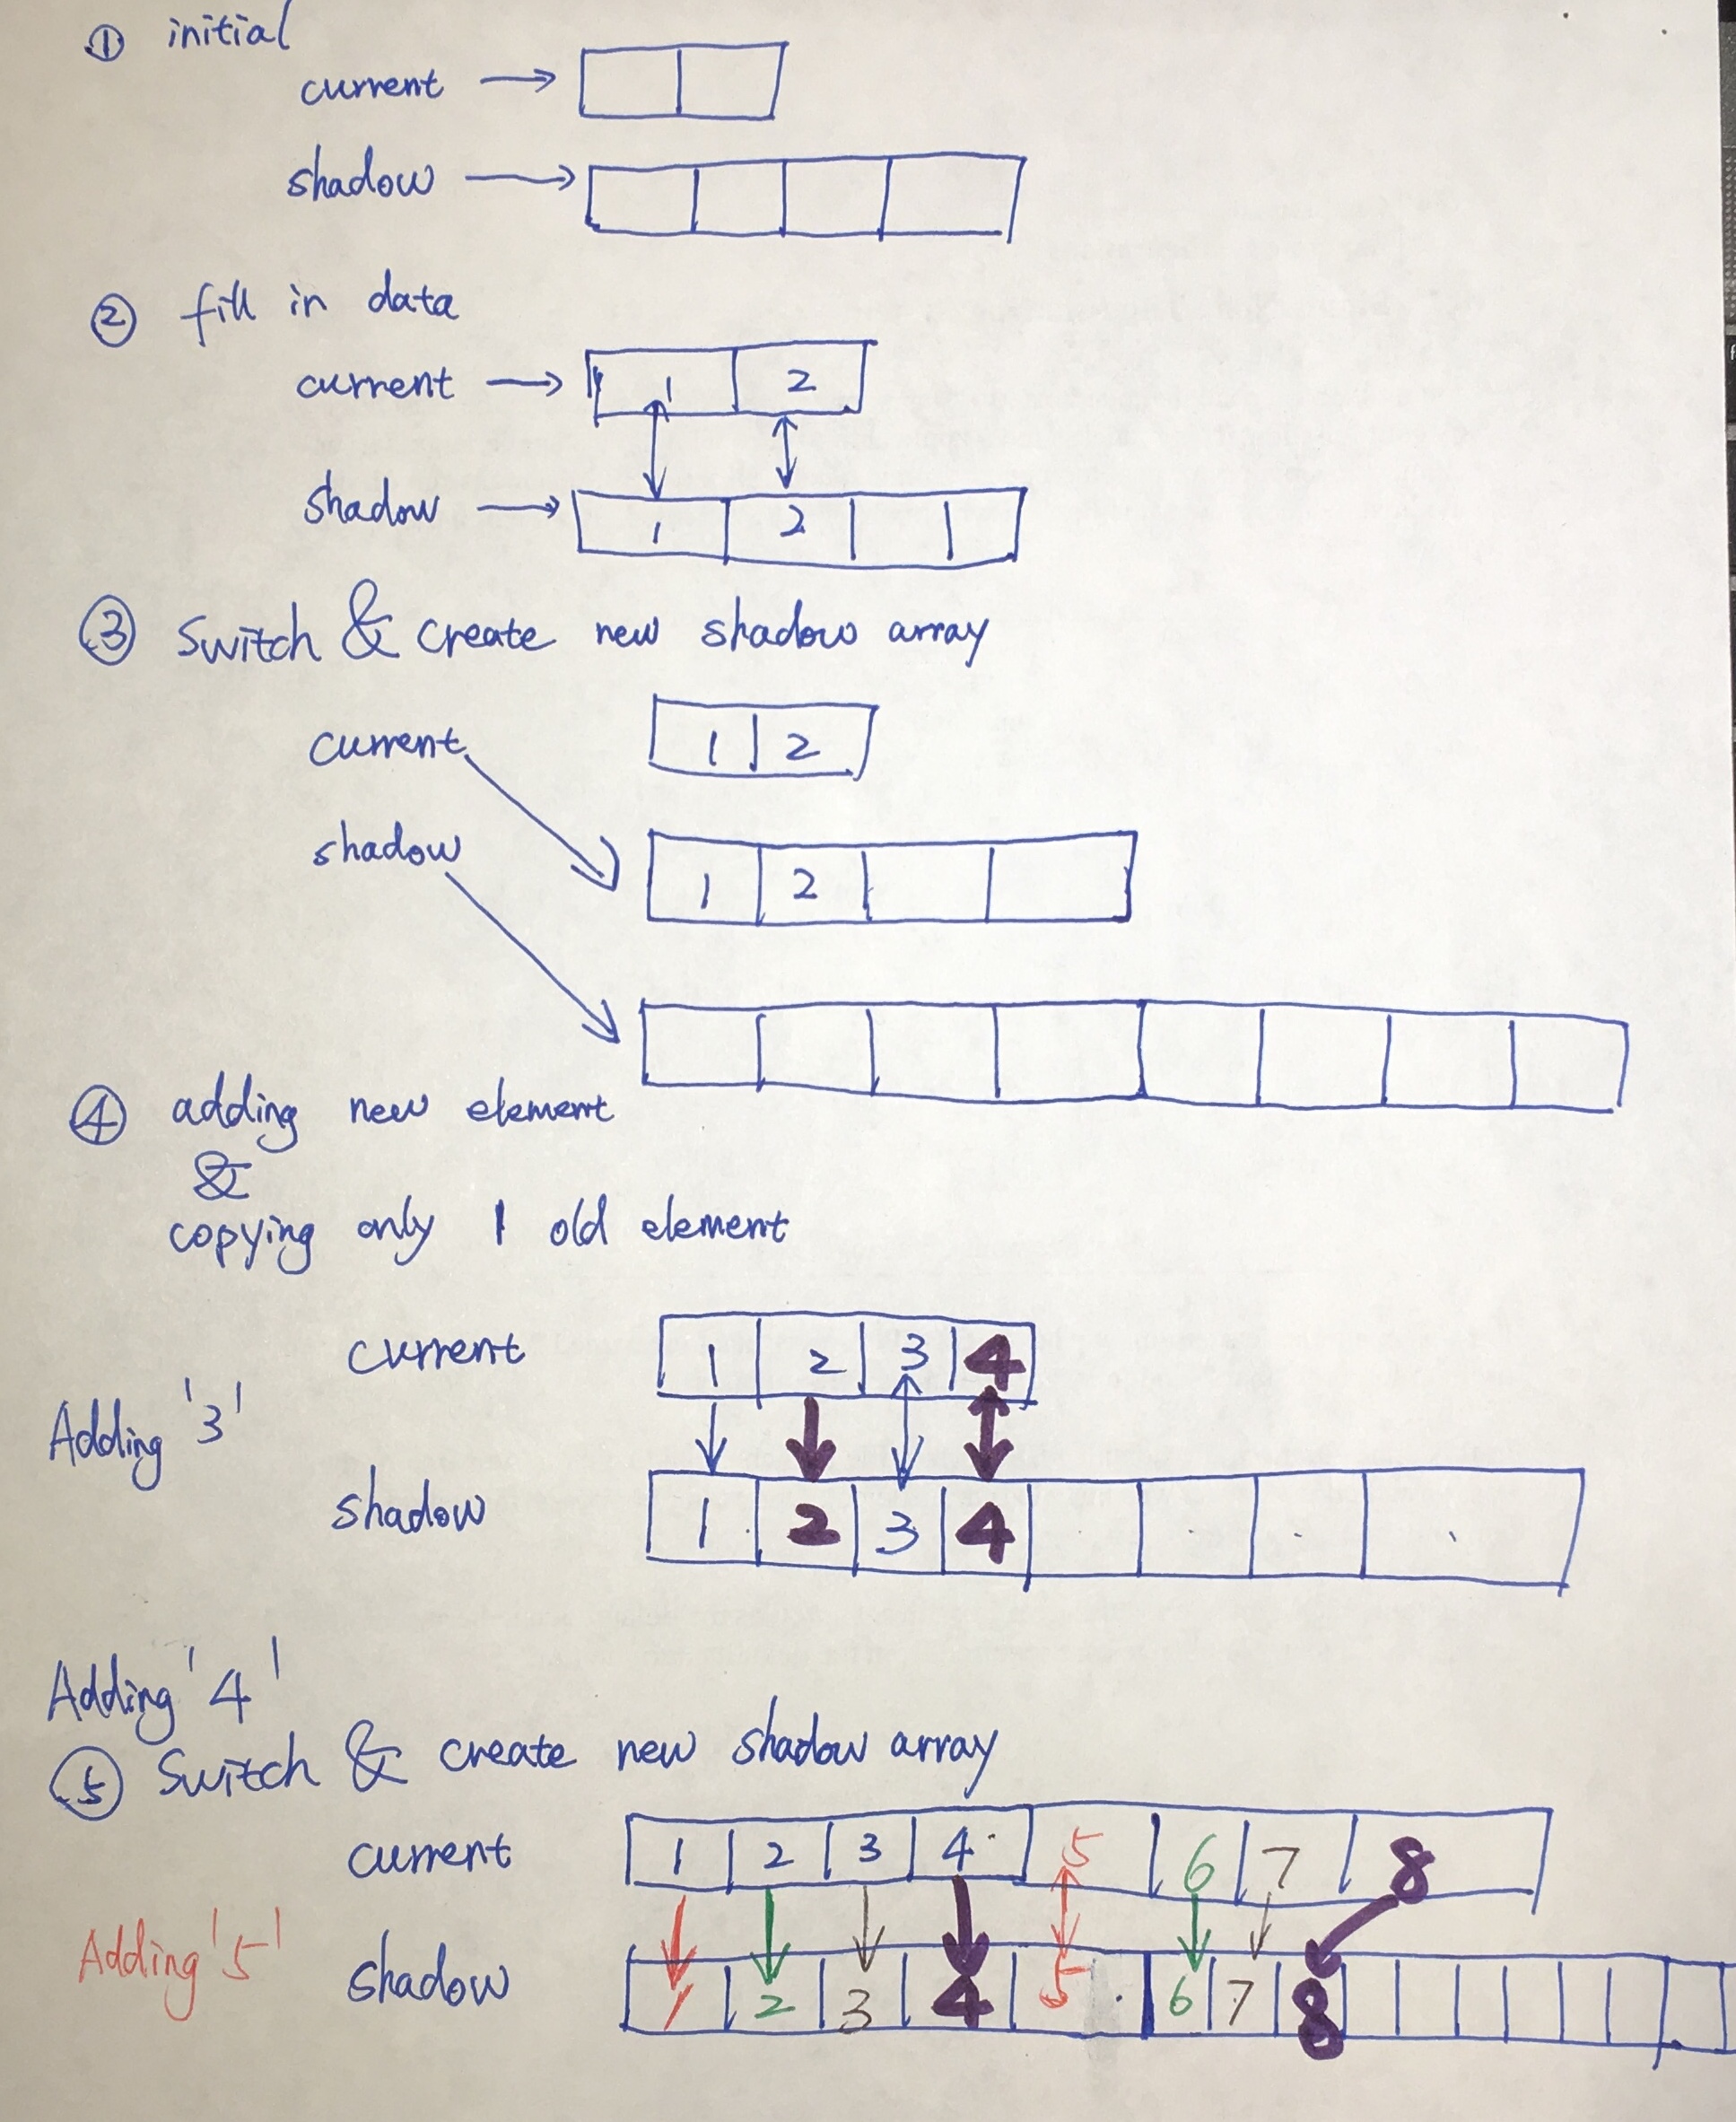 ① initial
current →
shadow →
② fill in data
current → 1 2
shadow → 1 2
③ Switch & create new shadow array
current 1 2
shadow 1 2
④ adding new element
&
copying only 1 old element
current 1 2 3 4
Adding '3'
shadow 1 2 3 4
Adding '4'
⑤ Switch & create new shadow array
current 1 2 3 4 5 6 7 8
Adding '5'
shadow 1 2 3 4 5 6 7 8